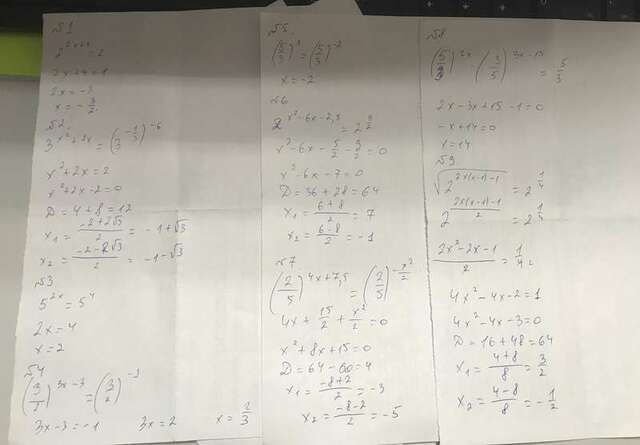 №1
2x = -3
x = -3/2
№2
3^(x²+2x) = (3^(-1/3))^(-6)
x² + 2x = 2
x² + 2x - 2 = 0
D = 4 + 8 = 12
x₁ = (-2 + 2√3)/2 = -1 + √3
x₂ = (-2 - 2√3)/2 = -1 - √3
№3
5^(2x) = 5^4
2x = 4
x = 2
№4
3x - 3 = -1 3x = 2
№5
(5/3)^x = (5/3)^(-2)
x = -2
№6
2^(x²-6x-2,5) = 2^(9/2)
x² - 6x - 5/2 - 9/2 = 0
x² - 6x - 7 = 0
D = 36 + 28 = 64
x₁ = (6+8)/2 = 7
x₂ = (6-8)/2 = -1
№7
(2/5)^(4x+7,5) = (2/5)^(-x²/2)
4x + 15/2 + x²/2 = 0
x² + 8x + 15 = 0
D = 64 - 60 = 4
x₁ = (-8+2)/2 = -3
x₂ = (-8-2)/2 = -5
№8
(5/3)^(2x) (3/5)^(3x-15) = 5/3
2x - 3x + 15 - 1 = 0
-x + 14 = 0
x = 14
№9
√(2^(2x(x-1)-1)) = 2^(1/4)
2^((2x(x-1)-1)/2) = 2^(1/4)
(2x² - 2x - 1)/2 = 1/4
4x² - 4x - 2 = 1
4x² - 4x - 3 = 0
D = 16 + 48 = 64
x₁ = (4+8)/8 = 3/2
x₂ = (4-8)/8 = -1/2